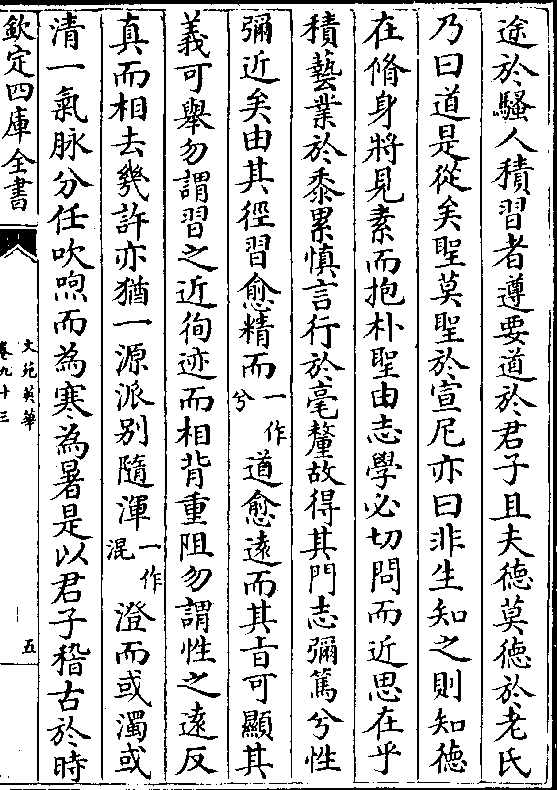 途於騷人積習者遵要道於君子且夫德莫德於老氏
乃曰道是從矣聖莫聖於宣尼亦曰非生知之則知德
在脩身將見素而抱朴聖由志學必切問而近思在乎
積藝業於黍累慎言行於毫釐故得其門志彌篤兮性
彌近矣由其徑習愈精而一作兮道愈遠而其旨可顯其
義可舉勿謂習之近徇迹而相背重阻勿謂性之遠反
真而相去幾許亦猶一源派别隨渾一作混澄而或濁或
清一氣脉分任吹喣而為寒為暑是以君子稽古於時
欽定四庫全書
文苑英華
卷九十三
五